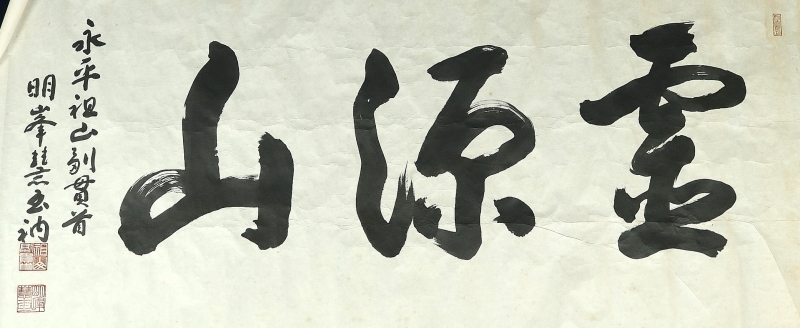 靈源山
永平祖山副貫首
明峯慧玉衲